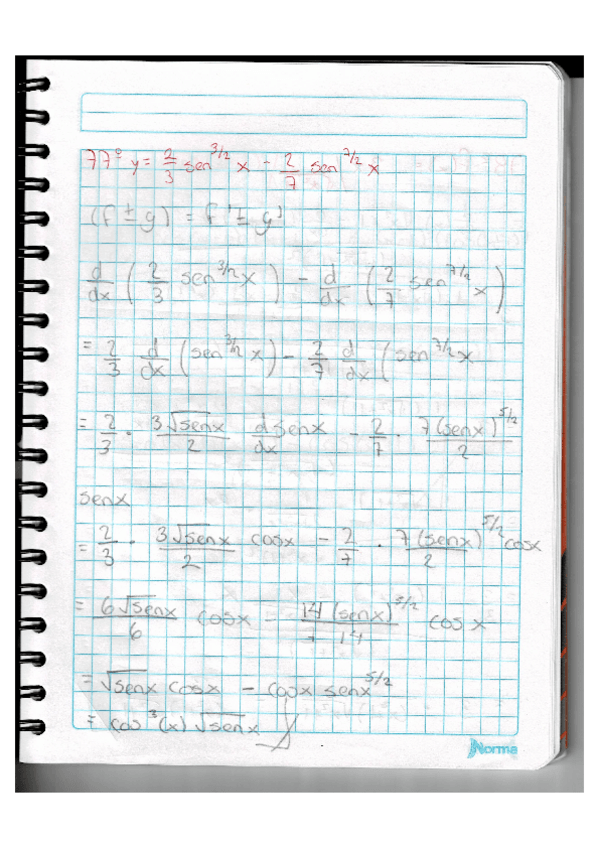 77° y = 2/3 sen^3/2 x - 2/7 sen^7/2 x
(f ± g) = f' ± g'
d/dx (2/3 sen^3/2 x) - d/dx (2/7 sen^7/2 x)
= 2/3 d/dx (sen^3/2 x) - 2/7 d/dx (sen^7/2 x
= 2/3 · 3√senx/2 d senx/dx - 2/7 · 7(senx)^5/2/2
senx
= 2/3 · 3√senx/2 cosx - 2/7 · 7(senx)^5/2/2 cosx
= 6√senx/6 cosx - 14(senx)^5/2/14 cosx
= √senx cosx - cosx senx^5/2
= cos^3(x) √senx
Norma